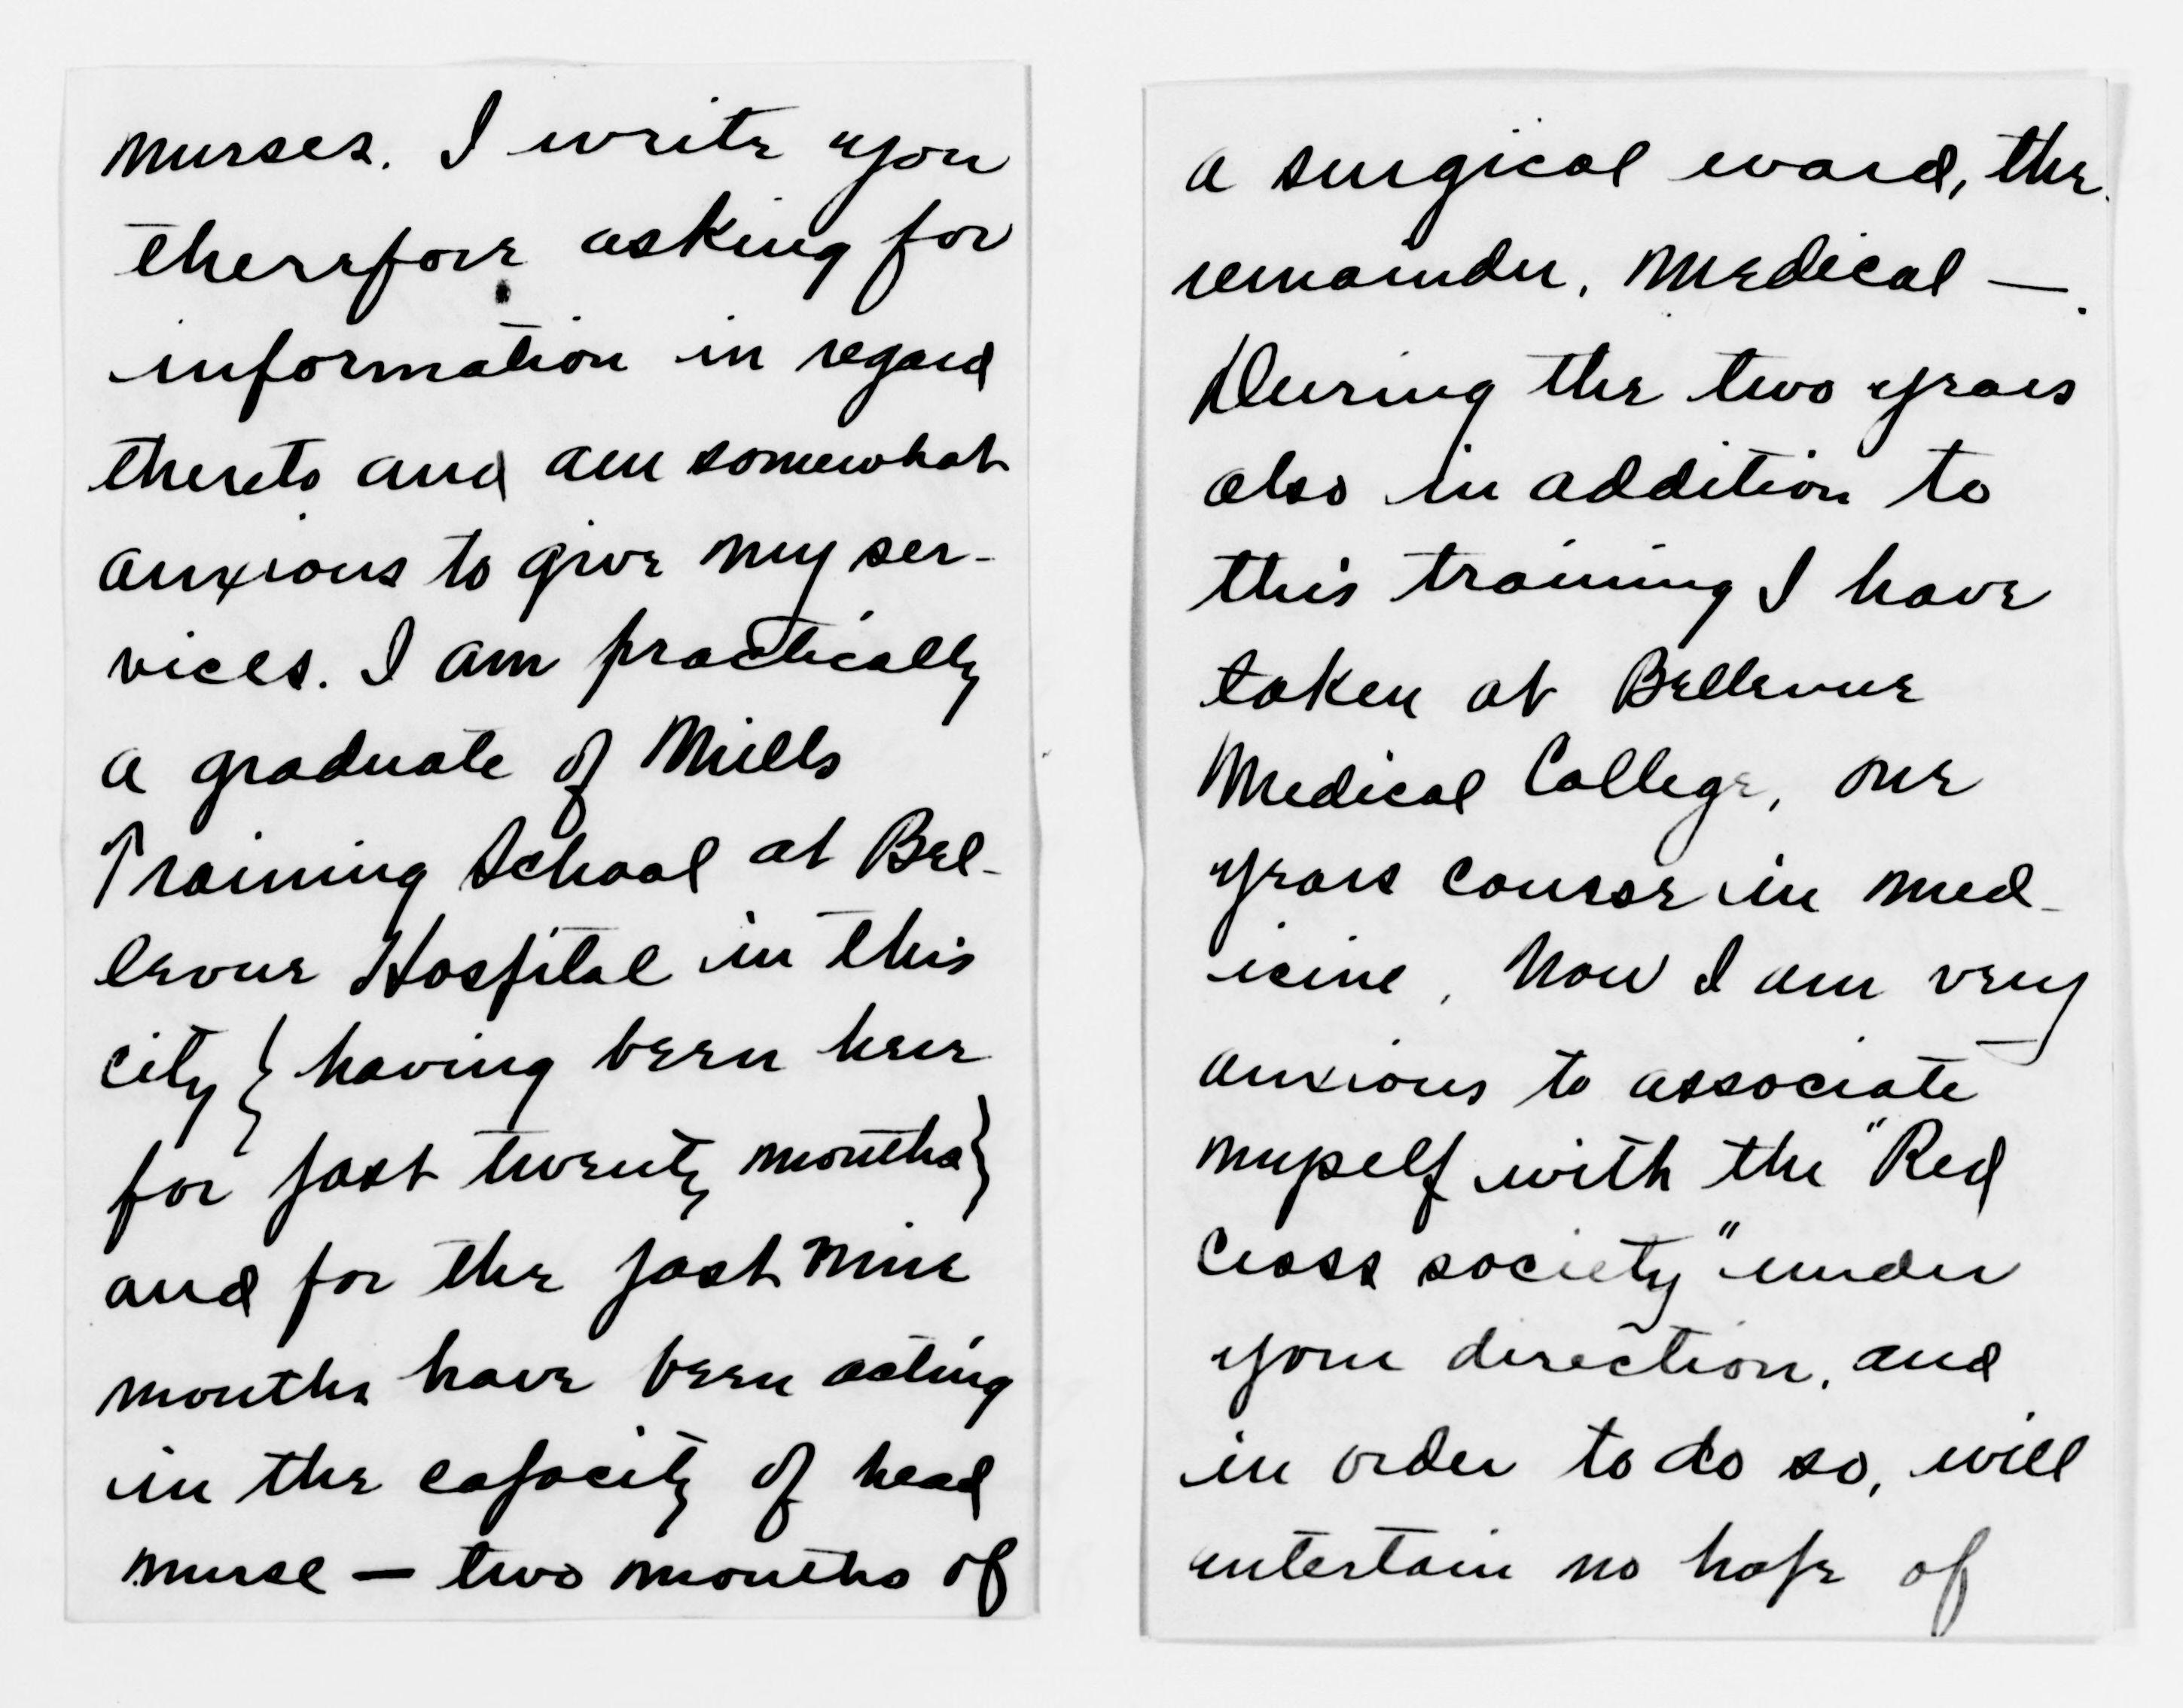 nurses. I write you
therefore asking for
information in regard
thereto and am somewhat
anxious to give my ser-
vices. I am practically
a graduate of Mills
Training School at Bel-
levue Hospital in this
city { having been here
for past twenty months }
and for the past nine
months have been acting
in the capacity of head
nurse — two months of
a surgical ward, the
remainder, medical —.
During the two years
also in addition to
this training I have
taken at Bellevue
Medical College, one
years course in med-
icine. Now I am very
anxious to associate
myself with the "Red
Cross society" under
your direction, and
in order to do so, will
entertain no hope of